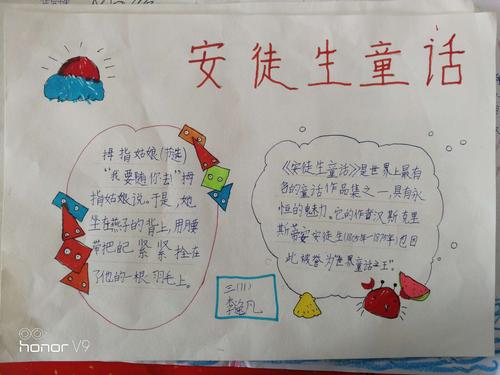 安徒生童话
拇指姑娘(节选)
“我要随你去”拇
指姑娘说。于是,她
坐在燕子的背上,用腰
带把自己紧紧拴在
了他的一根羽毛上。
《安徒生童话》是世界上最有
名的童话作品集之一,具有永
恒的魅力。它的作者汉斯克里
斯蒂安安徒生(1805年-1875年)也因
此被誉为“世界童话之王”。
三(11)
honor V9